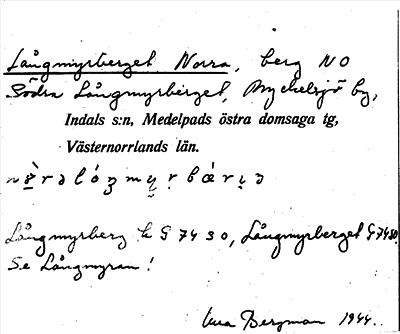 Långmyrberget Norra, berg NO
Södra Långmyrberget, Myckelsjö by,
Indals s:n, Medelpads östra domsaga tg,
Västernorrlands län.
Långmyrberg h G 7430, Långmyrberget G 7430.
Se Långmyran!
Bergman 1944.